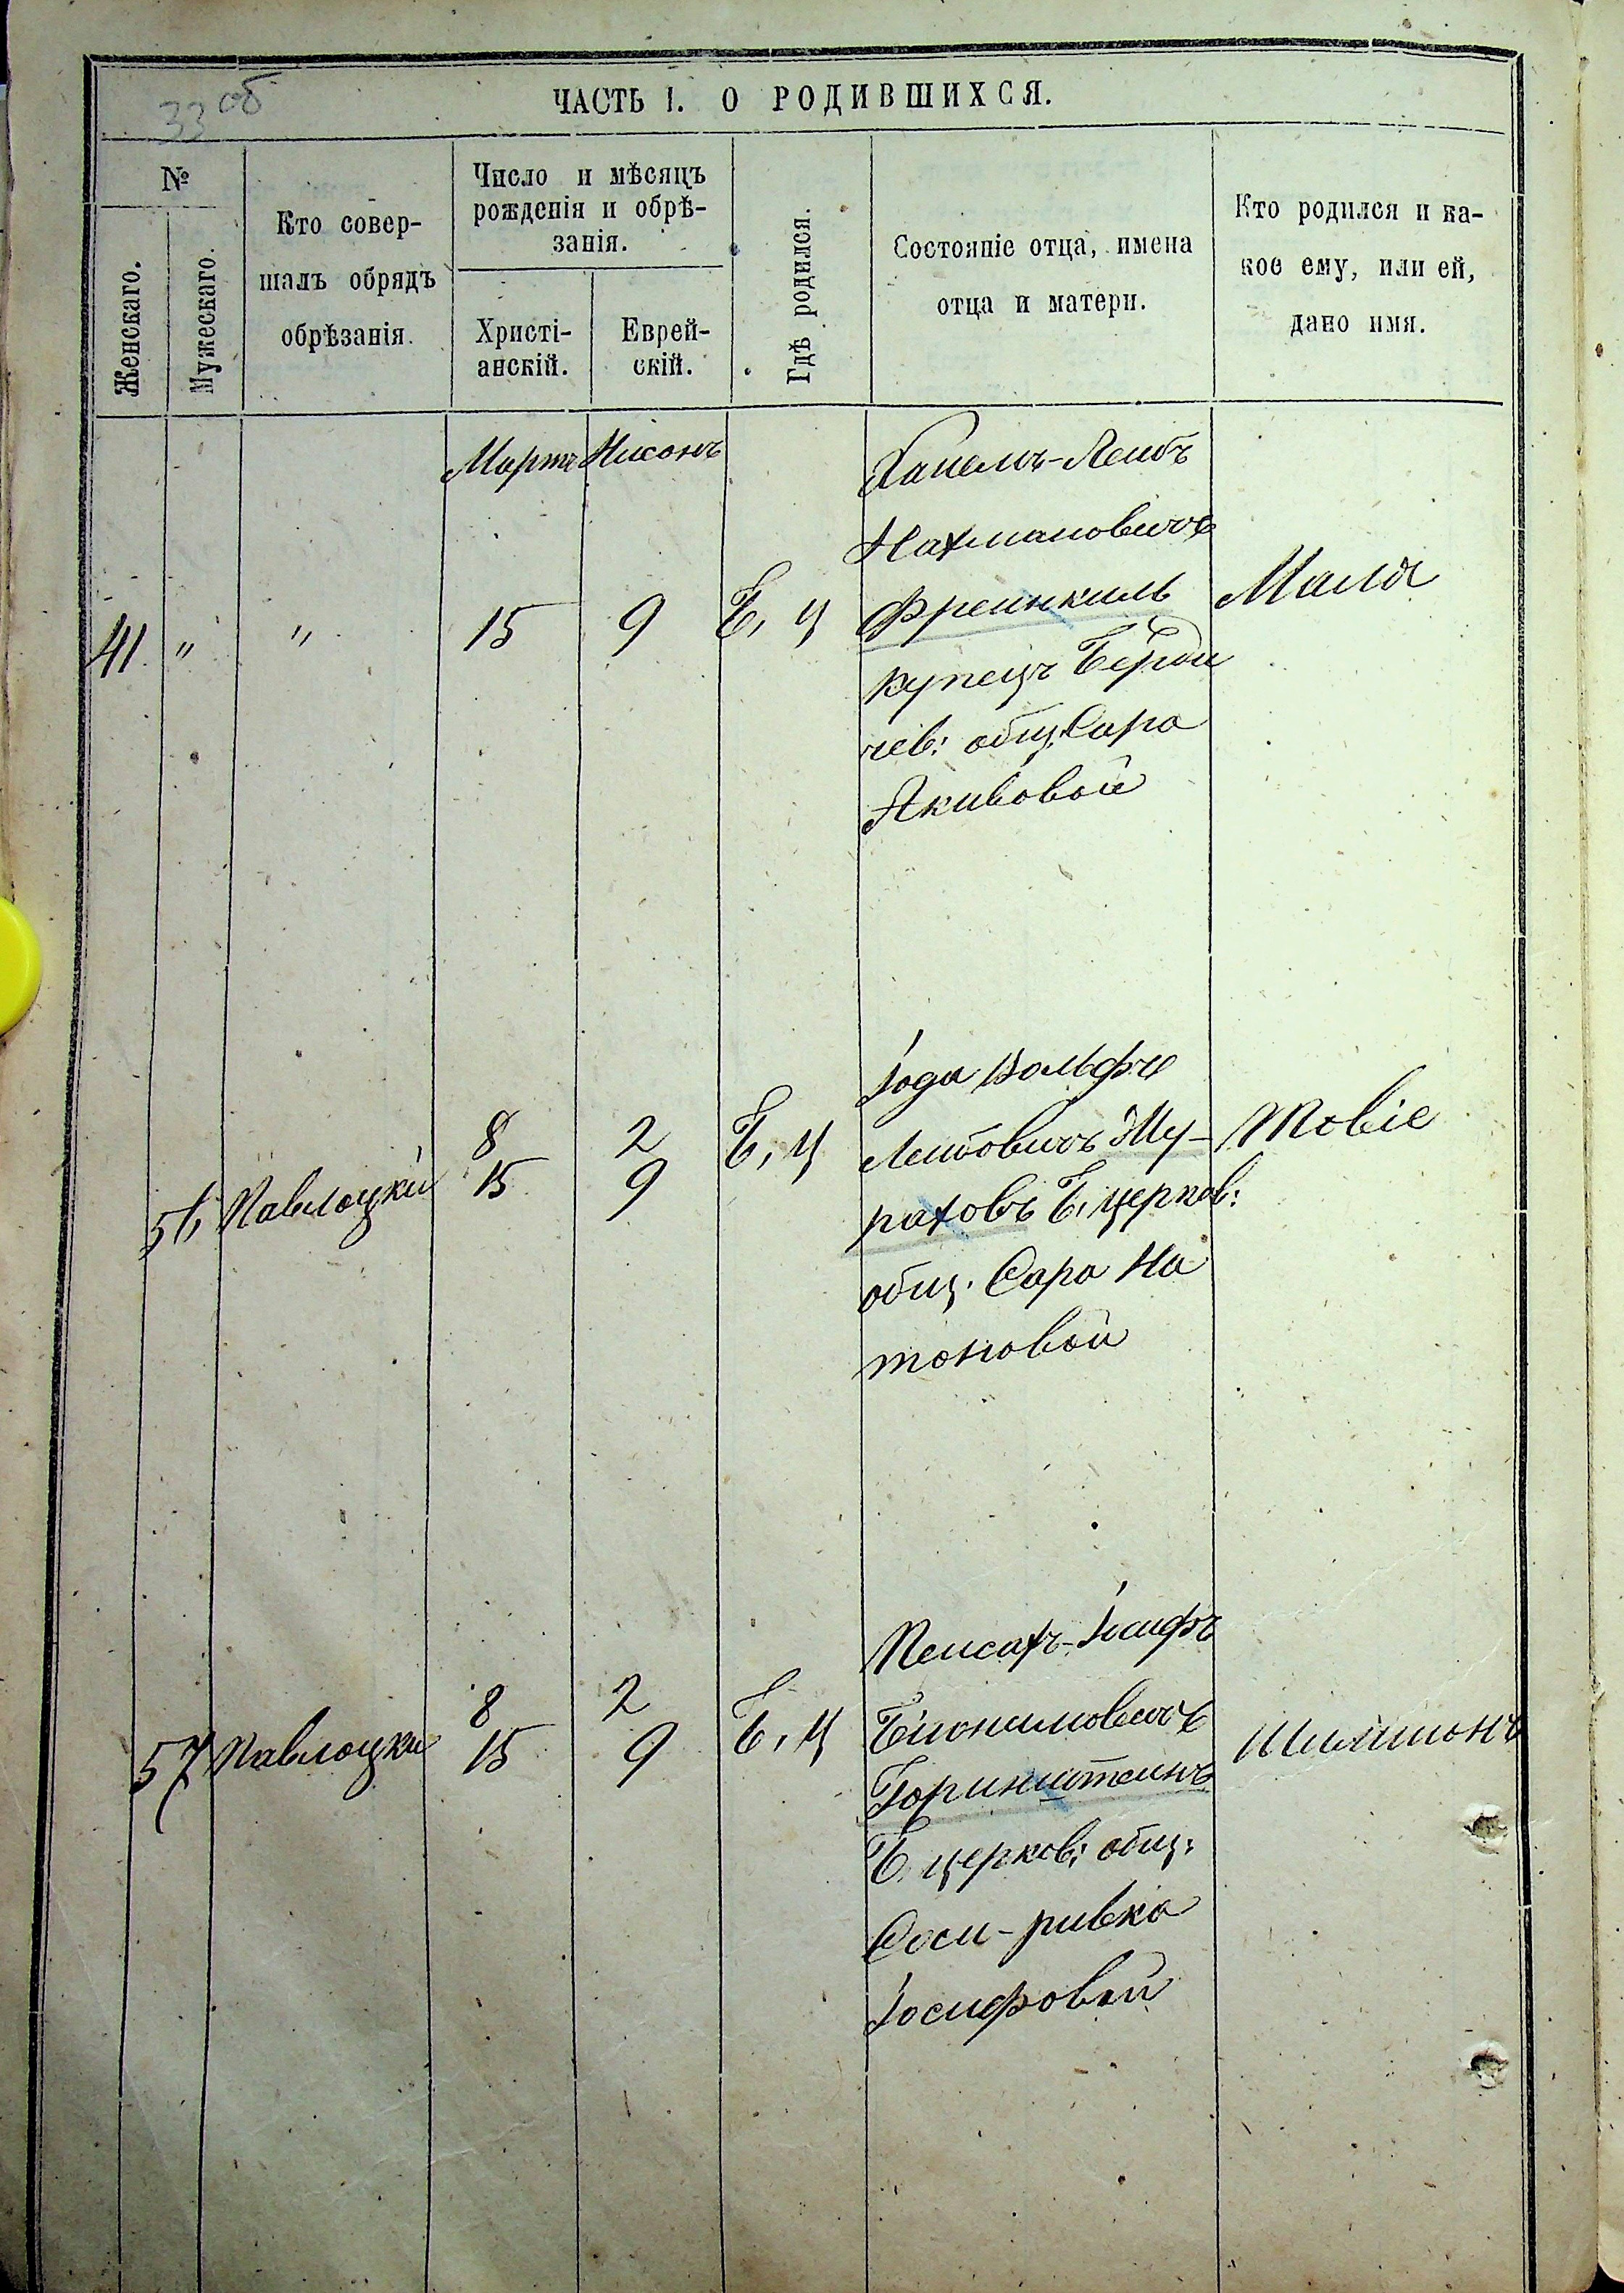 33 об
ЧАСТЬ I. О РОДИВШИХСЯ.
№
Женскаго.
Мужескаго.
Кто совер-
шалъ обрядъ
обрѣзанія.
Число и мѣсяцъ
рожденія и обрѣ-
занія.
Христі-
анскій.
Еврей-
скій.
Гдѣ родился.
Состояніе отца, имена
отца и матери.
Кто родился и ка-
кое ему, или ей,
дано имя.
Мартъ Нисонъ
41 " " 15 9 Б, Ц
Хапелъ-Лейбъ
Нахмановичъ
Френкиль
купецъ Берди
чев: общ. Сара
Акивовой
Мала
56 Павлоцкий 8 2 Б, Ц
15 9
Іода Вольфъ
Лейбовичъ Шу-
раховъ Б, церков:
общ. Сара На
тоновой
Товіе
57 Павлоцкий 8 2 Б, Ц
15 9
Пейсахъ-Іосифъ
Бюнимовичъ
Горинштеинъ
Б. церков: общ:
Соси-ривка
Іосифовой
Шимшонъ